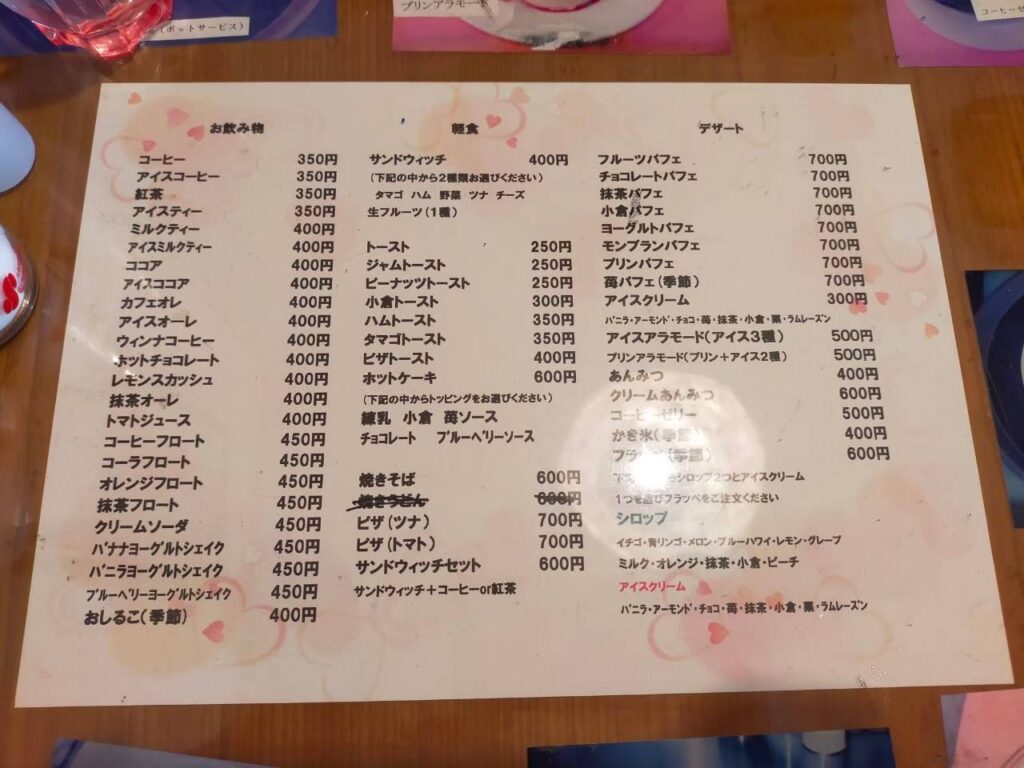 (ポットサービス)
プリンアラモード
お飲み物
コーヒー 350円
アイスコーヒー 350円
紅茶 350円
アイスティー 350円
ミルクティー 400円
アイスミルクティー 400円
ココア 400円
アイスココア 400円
カフェオレ 400円
アイスオーレ 400円
ウィンナコーヒー 400円
ホットチョコレート 400円
レモンスカッシュ 400円
抹茶オーレ 400円
トマトジュース 400円
コーヒーフロート 450円
コーラフロート 450円
オレンジフロート 450円
抹茶フロート 450円
クリームソーダ 450円
バナナヨーグルトシェイク 450円
バニラヨーグルトシェイク 450円
ブルーベリーヨーグルトシェイク 450円
おしるこ(季節) 400円
軽食
サンドウィッチ 400円
(下記の中から2種類お選びください)
タマゴ ハム 野菜 ツナ チーズ
生フルーツ(1種)
トースト 250円
ジャムトースト 250円
ピーナッツトースト 250円
小倉トースト 300円
ハムトースト 350円
タマゴトースト 350円
ピザトースト 400円
ホットケーキ 600円
(下記の中からトッピングをお選びください)
練乳 小倉 苺ソース
チョコレート ブルーベリーソース
焼きそば 600円
焼きうどん 600円
ピザ(ツナ) 700円
ピザ(トマト) 700円
サンドウィッチセット 600円
サンドウィッチ+コーヒーor紅茶
デザート
フルーツパフェ 700円
チョコレートパフェ 700円
抹茶パフェ 700円
小倉パフェ 700円
ヨーグルトパフェ 700円
モンブランパフェ 700円
プリンパフェ 700円
苺パフェ(季節) 700円
アイスクリーム 300円
バニラ・アーモンド・チョコ・苺・抹茶・小倉・栗・ラムレーズン
アイスアラモード(アイス3種) 500円
プリンアラモード(プリン+アイス2種) 500円
あんみつ 400円
クリームあんみつ 600円
コーヒーゼリー 500円
かき氷(季節) 400円
フラッペ(季節) 600円
シロップ2つとアイスクリーム
1つを選びフラッペをご注文ください
シロップ
イチゴ・青リンゴ・メロン・ブルーハワイ・レモン・グレープ
ミルク・オレンジ・抹茶・小倉・ピーチ
アイスクリーム
バニラ・アーモンド・チョコ・苺・抹茶・小倉・栗・ラムレーズン